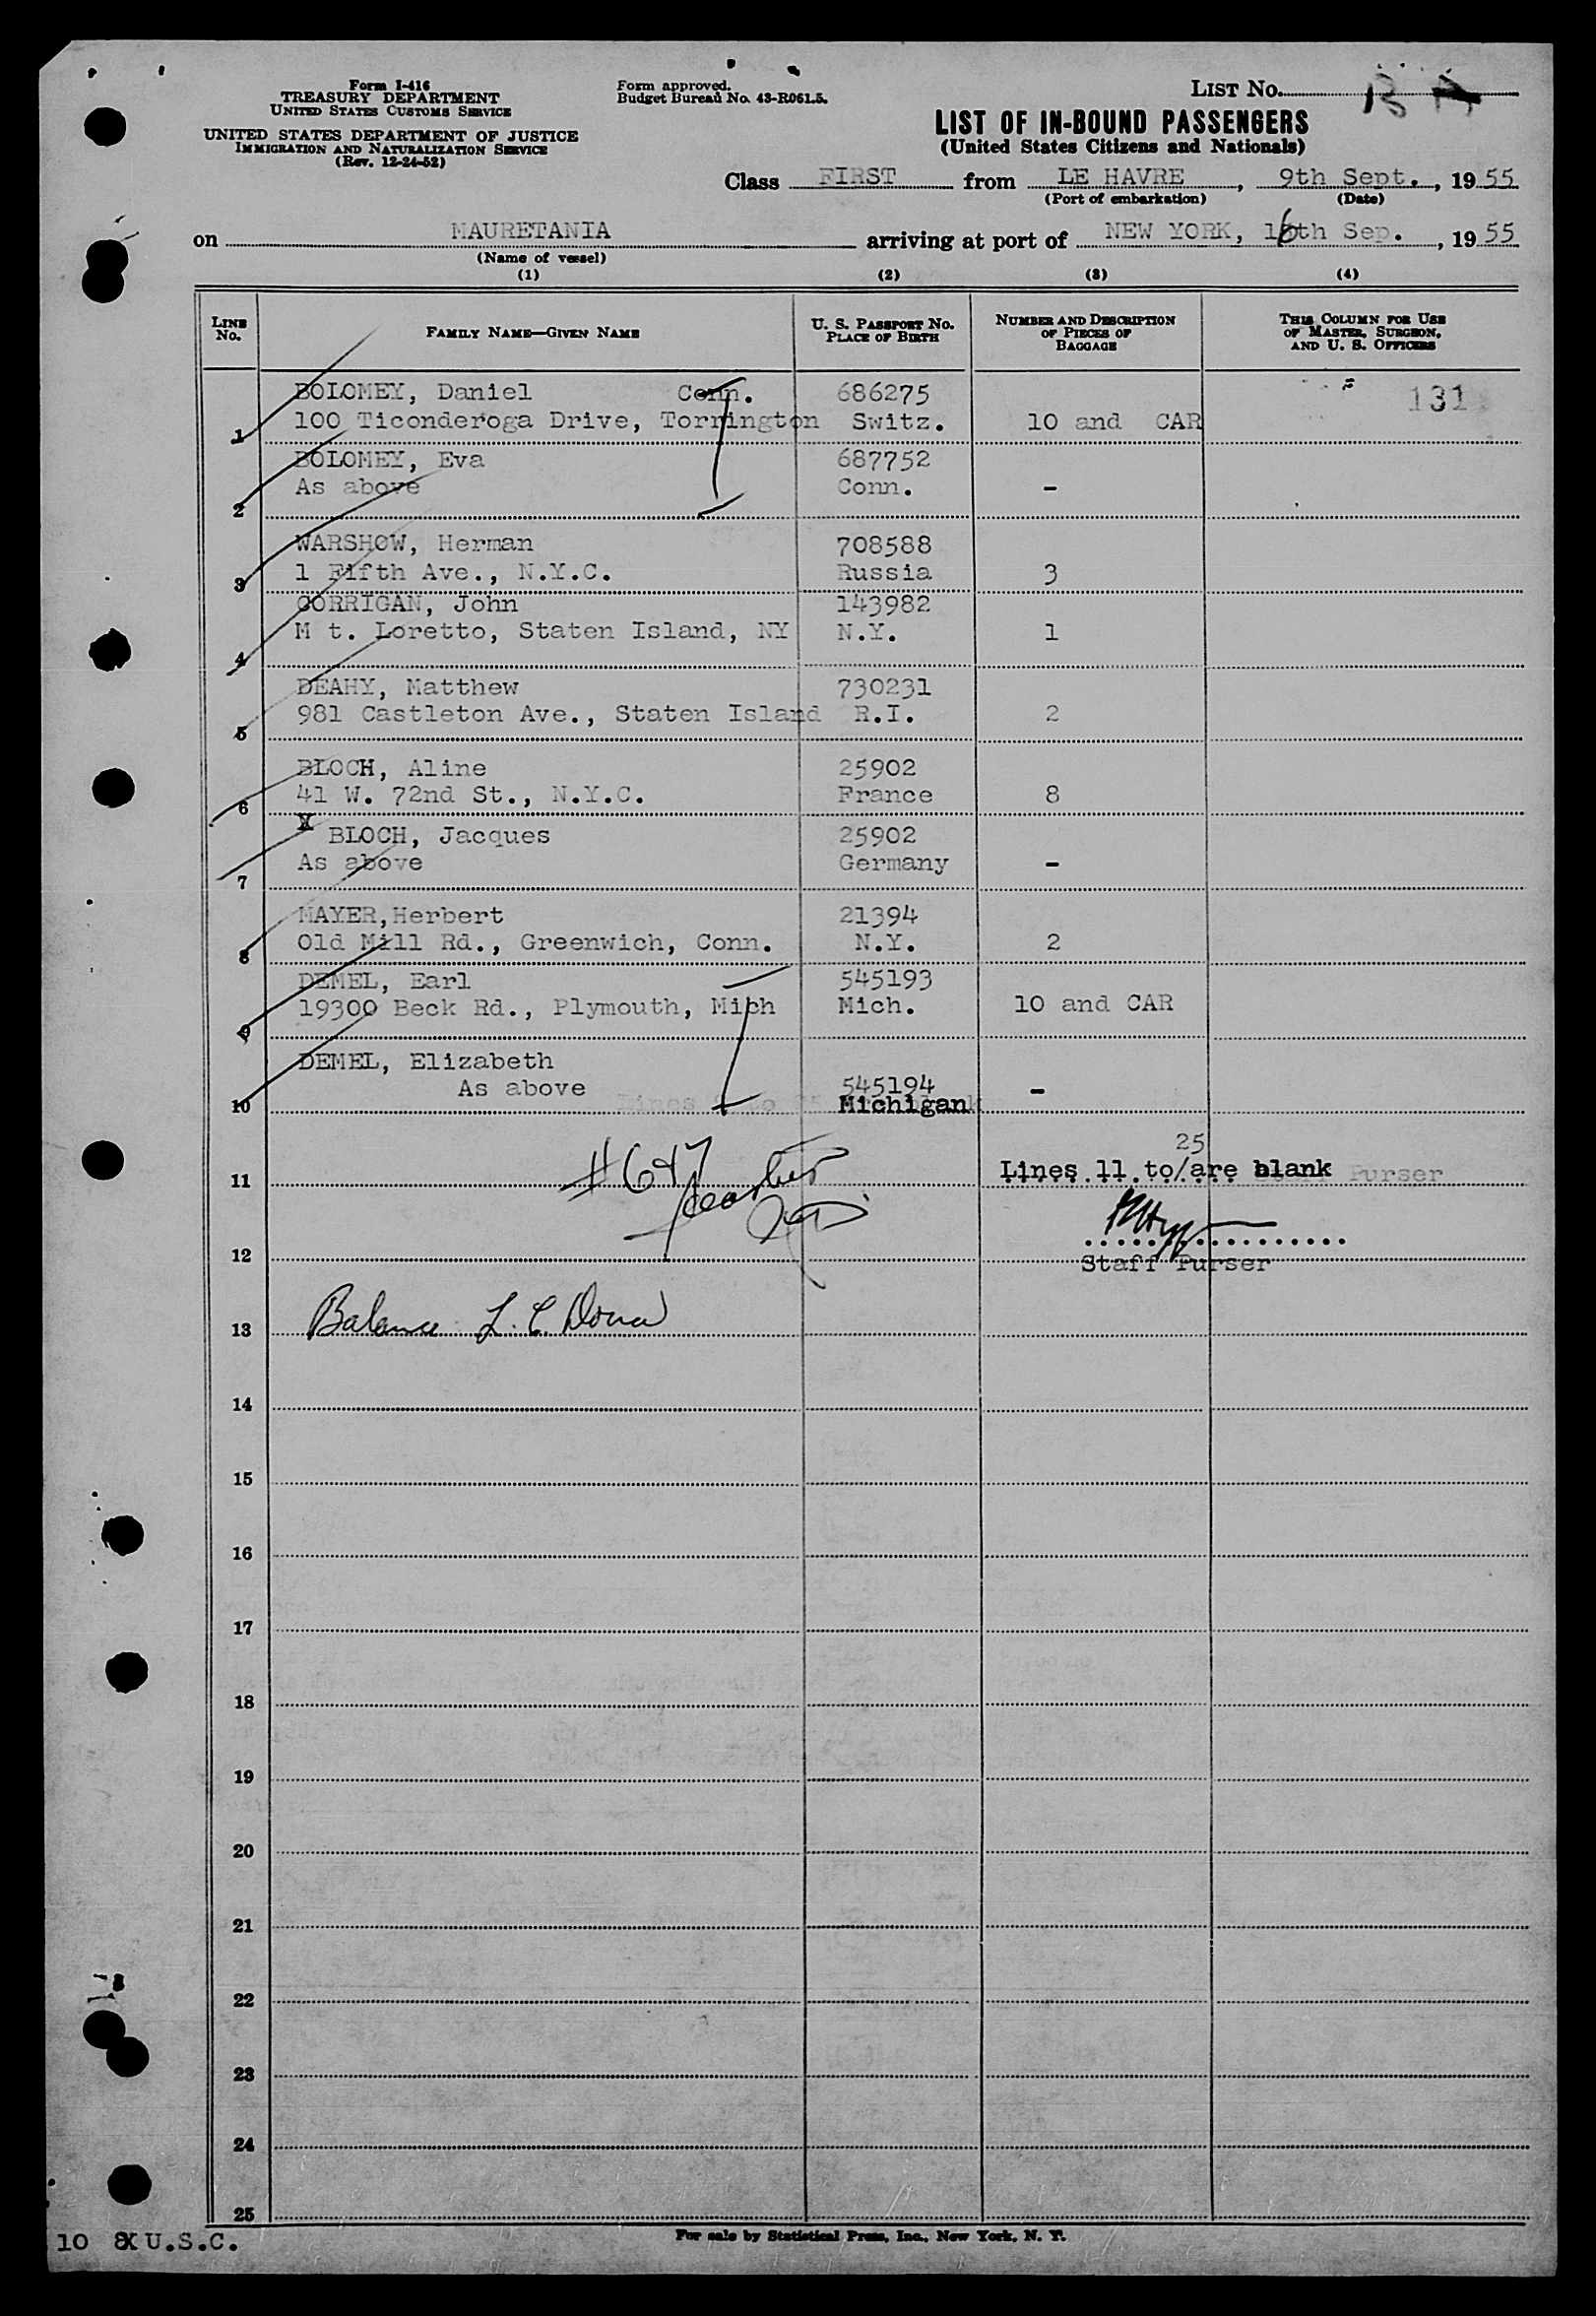 Form I-416
TREASURY DEPARTMENT
UNITED STATES CUSTOMS SERVICE
UNITED STATES DEPARTMENT OF JUSTICE
IMMIGRATION AND NATURALIZATION SERVICE
(Rev. 12-24-52)
Form approved.
Budget Bureau No. 43-R061.5.
LIST No. 13
LIST OF IN-BOUND PASSENGERS
(United States Citizens and Nationals)
Class FIRST from LE HAVRE, 9th Sept., 1955
(Port of embarkation) (Date)
on MAURETANIA arriving at port of NEW YORK, 16th Sep., 1955
(Name of vessel)
(1) (2) (3) (4)
LINE No. FAMILY NAME—GIVEN NAME U. S. PASSPORT No. PLACE OF BIRTH NUMBER AND DESCRIPTION OF PIECES OF BAGGAGE THIS COLUMN FOR USE OF MASTER, SURGEON, AND U. S. OFFICERS
BOLOMEY, Daniel Conn. 686275 131
1 100 Ticonderoga Drive, Torrington Switz. 10 and CAR
BOLOMEY, Eva 687752
2 As above Conn. -
WARSHOW, Herman 708588
3 1 Fifth Ave., N.Y.C. Russia 3
CORRIGAN, John 143982
4 M t. Loretto, Staten Island, NY N.Y. 1
DEAHY, Matthew 730231
5 981 Castleton Ave., Staten Island R.I. 2
BLOCH, Aline 25902
6 41 W. 72nd St., N.Y.C. France 8
BLOCH, Jacques 25902
7 As above Germany -
MAYER,Herbert 21394
8 Old Mill Rd., Greenwich, Conn. N.Y. 2
DEMEL, Earl 545193
9 19300 Beck Rd., Plymouth, Mich Mich. 10 and CAR
DEMEL, Elizabeth
10 As above 545194 -
Michigan
#647
25
11 Lines 11 to/are blank
12
Staff Purser
13 Balance L. C.
14
15
16
17
18
19
20
21
22
23
24
25
10 U.S.C.
For sale by Statistical Press, Inc., New York, N. Y.